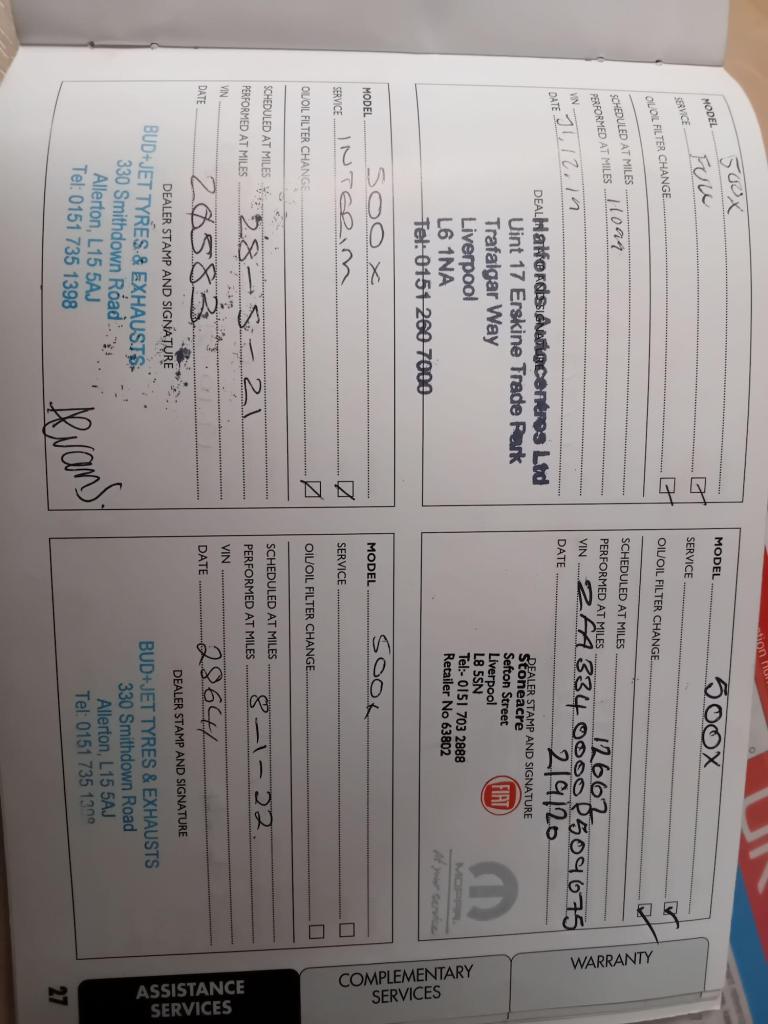 MODEL 500X
SERVICE FULL
OIL/OIL FILTER CHANGE
SCHEDULED AT MILES
PERFORMED AT MILES 11099
VIN
DATE 31.12.19
Halfords Autocentres Ltd
Uint 17 Erskine Trade Park
Trafalgar Way
Liverpool
L6 1NA
Tel: 0151 260 7000
MODEL 500X
SERVICE
OIL/OIL FILTER CHANGE
SCHEDULED AT MILES
PERFORMED AT MILES 12667
VIN
DATE 2/9/20
DEALER STAMP AND SIGNATURE
Stoneacre
Sefton Street
Liverpool
L8 5SN
Tel:- 0151 703 2888
Retailer No 63802
FIAT
MOPAR
At your service
MODEL 500X
SERVICE INTERIM
OIL/OIL FILTER CHANGE
SCHEDULED AT MILES
PERFORMED AT MILES 28-5-21
VIN
DATE
DEALER STAMP AND SIGNATURE
BUD+JET TYRES & EXHAUSTS
330 Smithdown Road
Allerton, L15 5AJ
Tel: 0151 735 1398
MODEL 500X
SERVICE
OIL/OIL FILTER CHANGE
SCHEDULED AT MILES
PERFORMED AT MILES 8-1-22.
VIN
DATE 28641
DEALER STAMP AND SIGNATURE
BUD+JET TYRES & EXHAUSTS
330 Smithdown Road
Allerton, L15 5AJ
Tel: 0151 735
WARRANTY
COMPLEMENTARY
SERVICES
ASSISTANCE
SERVICES
27